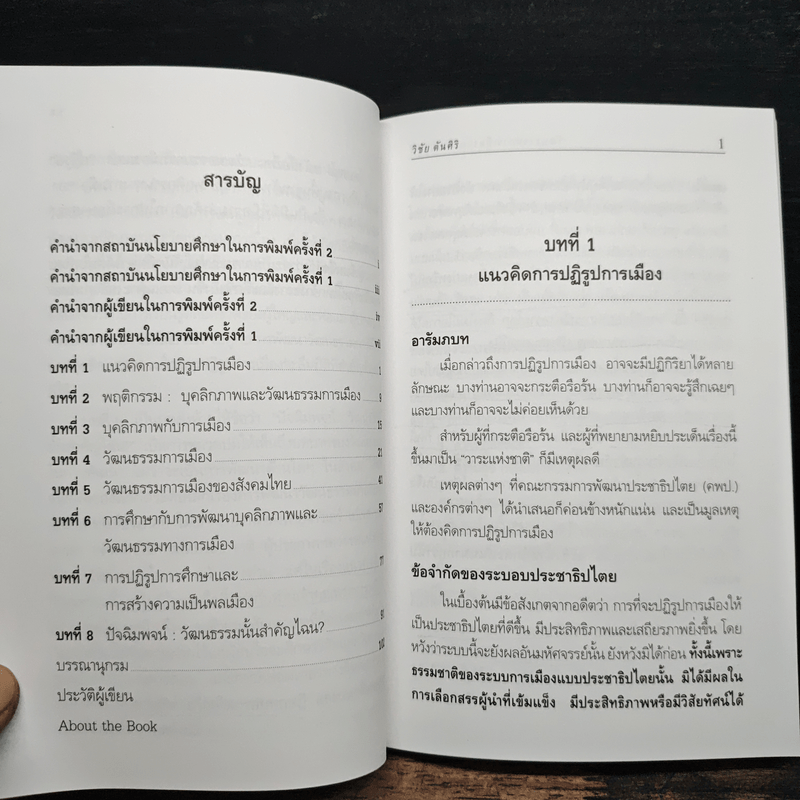 สารบัญ
คำนำจากสถาบันนโยบายศึกษาในการพิมพ์ครั้งที่ 2 i
คำนำจากสถาบันนโยบายศึกษาในการพิมพ์ครั้งที่ 1 iii
คำนำจากผู้เขียนในการพิมพ์ครั้งที่ 2 iv
คำนำจากผู้เขียนในการพิมพ์ครั้งที่ 1 vii
บทที่ 1 แนวคิดการปฏิรูปการเมือง 1
บทที่ 2 พฤติกรรม : บุคลิกภาพและวัฒนธรรมการเมือง 9
บทที่ 3 บุคลิกภาพกับการเมือง 15
บทที่ 4 วัฒนธรรมการเมือง 21
บทที่ 5 วัฒนธรรมการเมืองของสังคมไทย 41
บทที่ 6 การศึกษากับการพัฒนาบุคลิกภาพและ 57
วัฒนธรรมทางการเมือง
บทที่ 7 การปฏิรูปการศึกษาและ 77
การสร้างความเป็นพลเมือง
บทที่ 8 ปัจฉิมพจน์ : วัฒนธรรมนั้นสำคัญไฉน? 91
บรรณานุกรม 102
ประวัติผู้เขียน
About the Book
วิชัย ตันศิริ 1
บทที่ 1
แนวคิดการปฏิรูปการเมือง
อารัมภบท
เมื่อกล่าวถึงการปฏิรูปการเมือง อาจจะมีปฏิกิริยาได้หลาย
ลักษณะ บางท่านอาจจะกระตือรือร้น บางท่านก็อาจจะรู้สึกเฉยๆ
และบางท่านก็อาจจะไม่ค่อยเห็นด้วย
สำหรับผู้ที่กระตือรือร้น และผู้ที่พยายามหยิบประเด็นเรื่องนี้
ขึ้นมาเป็น “วาระแห่งชาติ” ก็มีเหตุผลดี
เหตุผลต่างๆ ที่คณะกรรมการพัฒนาประชาธิปไตย (คพป.)
และองค์กรต่างๆ ได้นำเสนอก็ค่อนข้างหนักแน่น และเป็นมูลเหตุ
ให้ต้องคิดการปฏิรูปการเมือง
ข้อจำกัดของระบอบประชาธิปไตย
ในเบื้องต้นมีข้อสังเกตจากอดีตว่า การที่จะปฏิรูปการเมืองให้
เป็นประชาธิปไตยที่ดีขึ้น มีประสิทธิภาพและเสถียรภาพยิ่งขึ้น โดย
หวังว่าระบบนี้จะยังผลอันมหัศจรรย์นั้น ยังหวังมิได้ก่อน ทั้งนี้เพราะ
ธรรมชาติของระบบการเมืองแบบประชาธิปไตยนั้น มิได้มีผลใน
การเลือกสรรผู้นำที่เข้มแข็ง มีประสิทธิภาพหรือมีวิสัยทัศน์ได้